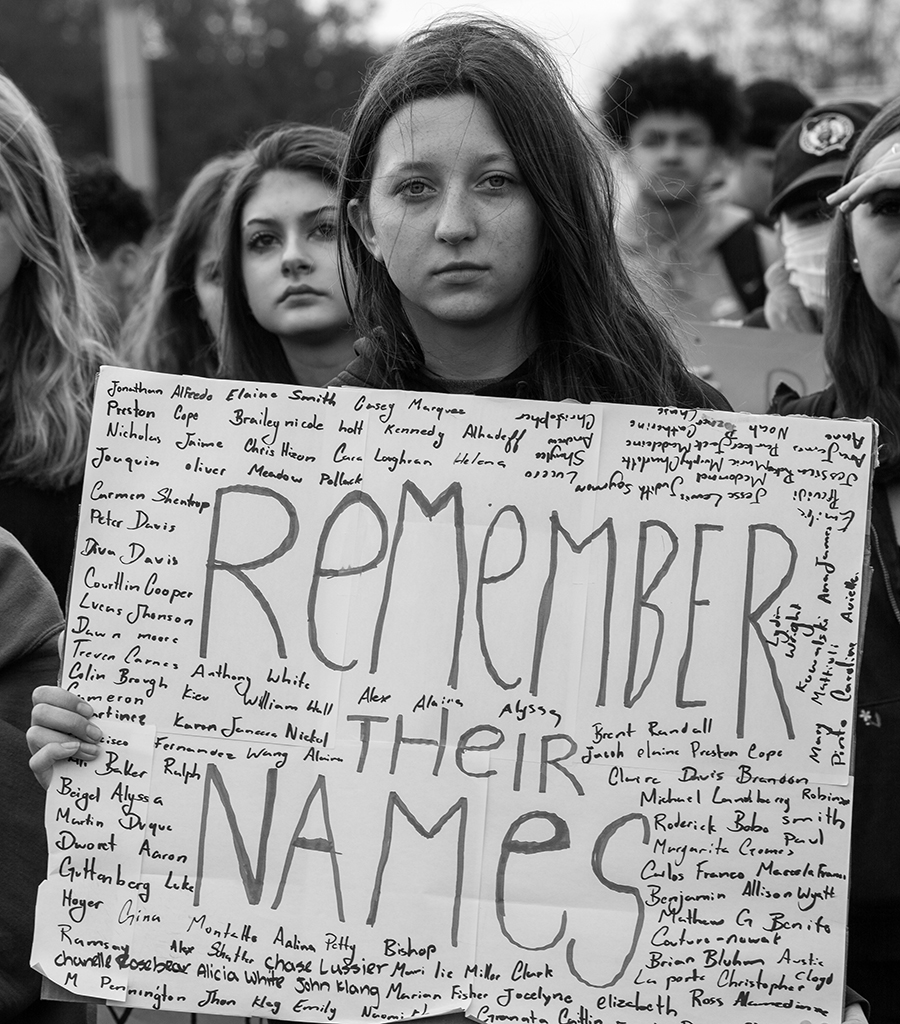 Jonathan Alfredo Elaine Smith Casey Marquez
Preston Cope Brailey nicole holt Kennedy Alhadeff
Christopher
Andrew
Shaylee
Lucero
Nicholas Jaime Chris Hixon Cara Loughran Helena
Jouquin oliver Meadow Pollack
Chase
Catherine
Noah
Parker Jack Madeleine
McDonnel Judith Seymour
Jesse Lewis
Jessica
James
Anne
Emilie
Carmen Shentrop
Peter Davis
Diva Davis
Courtlin Cooper
Lucas Jhonson
Dawn moore
Treven Carnes
Colin Brough Anthony White
Cameron Kiev William Hall
Martinez Karon Janecca Nickol
Fernandez Wang Alaina
Baker Ralph
Beigel Alyssa
Martin Duque
Dworet Aaron
Guttenberg Luke
Hoyer Gina
Ramsay
REMEMBER
THEIR
NAMES
Alex Alaina Alyssa
Lydia
Wright
Kowalski Ana James
Mattioli
Mary
Pinto Caroline Avielle
Brent Randall
Jacob elaine Preston Cope
Claire Davis Brandon
Michael Landberg Robinson
Roderick Bobo smith
Margarita Gomes Paul
Carlos Franco Marcela Franco
Benjamin Allison Wyatt
Mathew G Benito
Couture-nowak
Brian Bluhm Austin
La porte Christopher Cloyd
Montalto Aalina Petty Bishop
Alex Shatter chase Lussier Mari lie Miller Clark
chanelle Rosebear Alicia White John Klang Marian Fisher Jocelyne elizabeth Ross Alamedine
M Pennington Jhon klag Emily Naomi
Granata Caitlin